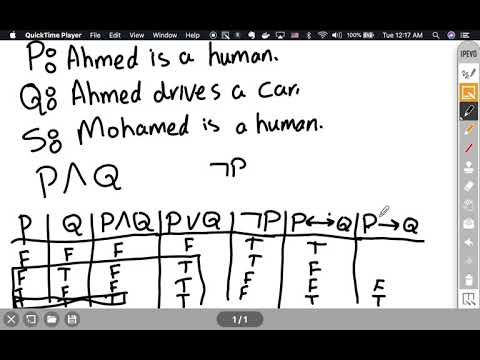 QuickTime Player File Edit View Window Help 100% Tue 12:17 AM
IPEVO
P: Ahmed is a human.
Q: Ahmed drives a car.
S: Mohamed is a human.
P∧Q ¬P
P Q P∧Q P∨Q ¬P P↔Q P→Q
F F F F T T
F T F T T F
T F F T F F F
T T F T T
1/1